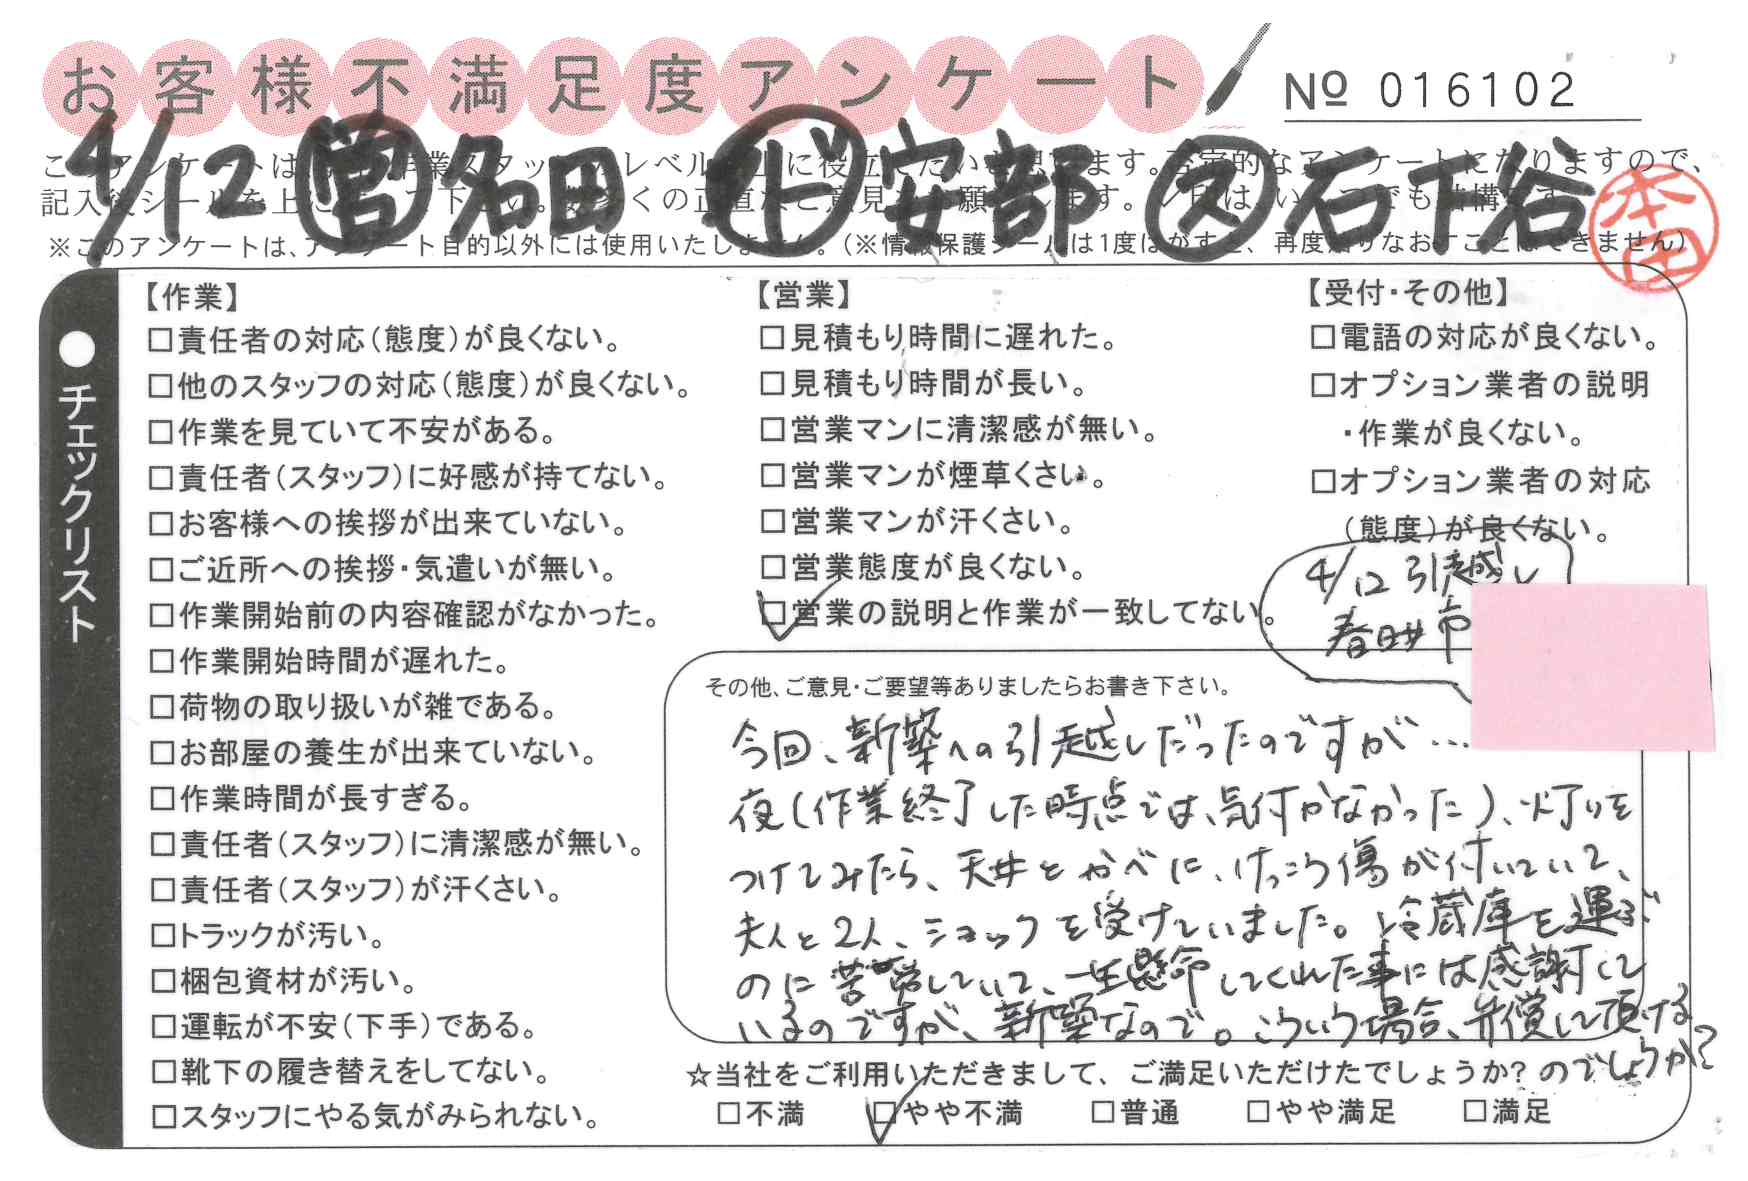 お客様不満足度アンケート
№ 016102
4/12 営 名田 ド 安部 ス 石下谷
本田
記入後シールを上に
※このアンケートは、アンケート目的以外には使用いたしません。(※情報保護シールは1度はがすと、再度貼りなおすことはできません)
●チェックリスト
【作業】
□責任者の対応(態度)が良くない。
□他のスタッフの対応(態度)が良くない。
□作業を見ていて不安がある。
□責任者(スタッフ)に好感が持てない。
□お客様への挨拶が出来ていない。
□ご近所への挨拶・気遣いが無い。
□作業開始前の内容確認がなかった。
□作業開始時間が遅れた。
□荷物の取り扱いが雑である。
□お部屋の養生が出来ていない。
□作業時間が長すぎる。
□責任者(スタッフ)に清潔感が無い。
□責任者(スタッフ)が汗くさい。
□トラックが汚い。
□梱包資材が汚い。
□運転が不安(下手)である。
□靴下の履き替えをしてない。
□スタッフにやる気がみられない。
【営業】
□見積もり時間に遅れた。
□見積もり時間が長い。
□営業マンに清潔感が無い。
□営業マンが煙草くさい。
□営業マンが汗くさい。
□営業態度が良くない。
☑営業の説明と作業が一致してない。
【受付・その他】
□電話の対応が良くない。
□オプション業者の説明
・作業が良くない。
□オプション業者の対応
(態度)が良くない。
4/12 引越し
春日井市
その他、ご意見・ご要望等ありましたらお書き下さい。
今回、新築への引越しだったのですが…
夜(作業終了した時点では、気付かなかった)、灯りを
つけてみたら、天井とかべに、けっこう傷が付いていて、
夫人と2人、ショックを受けていました。冷蔵庫を運ぶ
のに苦労していて、一生懸命してくれた事には感謝して
いるのですが、新築なので。こういう場合、弁償して頂ける
のでしょうか?
☆当社をご利用いただきまして、ご満足いただけたでしょうか?
□不満 ☑やや不満 □普通 □やや満足 □満足